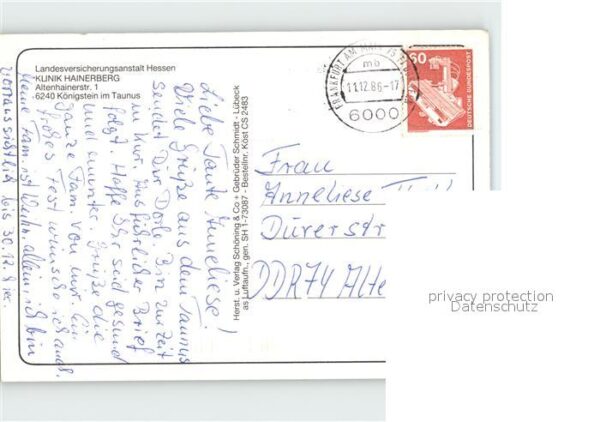 Landesversicherungsanstalt Hessen
KLINIK HAINERBERG
Altenhainerstr. 1
6240 Königstein im Taunus
Liebe Tante Anneliese!
Viele Grüße aus dem Taunus
sendet Dir Dorle. Bin zur Zeit
in Kur. Ausführlicher Brief
folgt. Hoffe Ihr seid gesund
und munter. Grüße die
ganze Fam. von mir. Ein
frohes Fest wünsche ich auch.
Meine Fam. ist Weihn. allein, ich bin
voraussichtlich bis 30.12. hier.
Herst. u. Verlag Schöning & Co + Gebrüder Schmidt - Lübeck
as Luftaufn., gen. SH 1-73087 - Bestellnr. Köst CS 2483
FRANKFURT AM MAIN
mb
11.12.86-17
6000
60
DEUTSCHE BUNDESPOST
Frau
Anneliese
Dürerstr
DDR74 Alte
privacy protection
Datenschutz